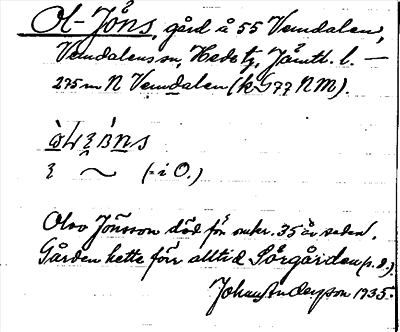 Ol-Jöns, gård å 55 Vemdalen,
Vemdalens sn, Hede tg, Jämtl. l. —
275 m N Vemdalen (k 577 NM).
(= i O.)
Olov Jönsson död för omkr. 35 år sedan.
Gården hette förr alltid Sörgården (s. d.).
Johans Anderson 1935.